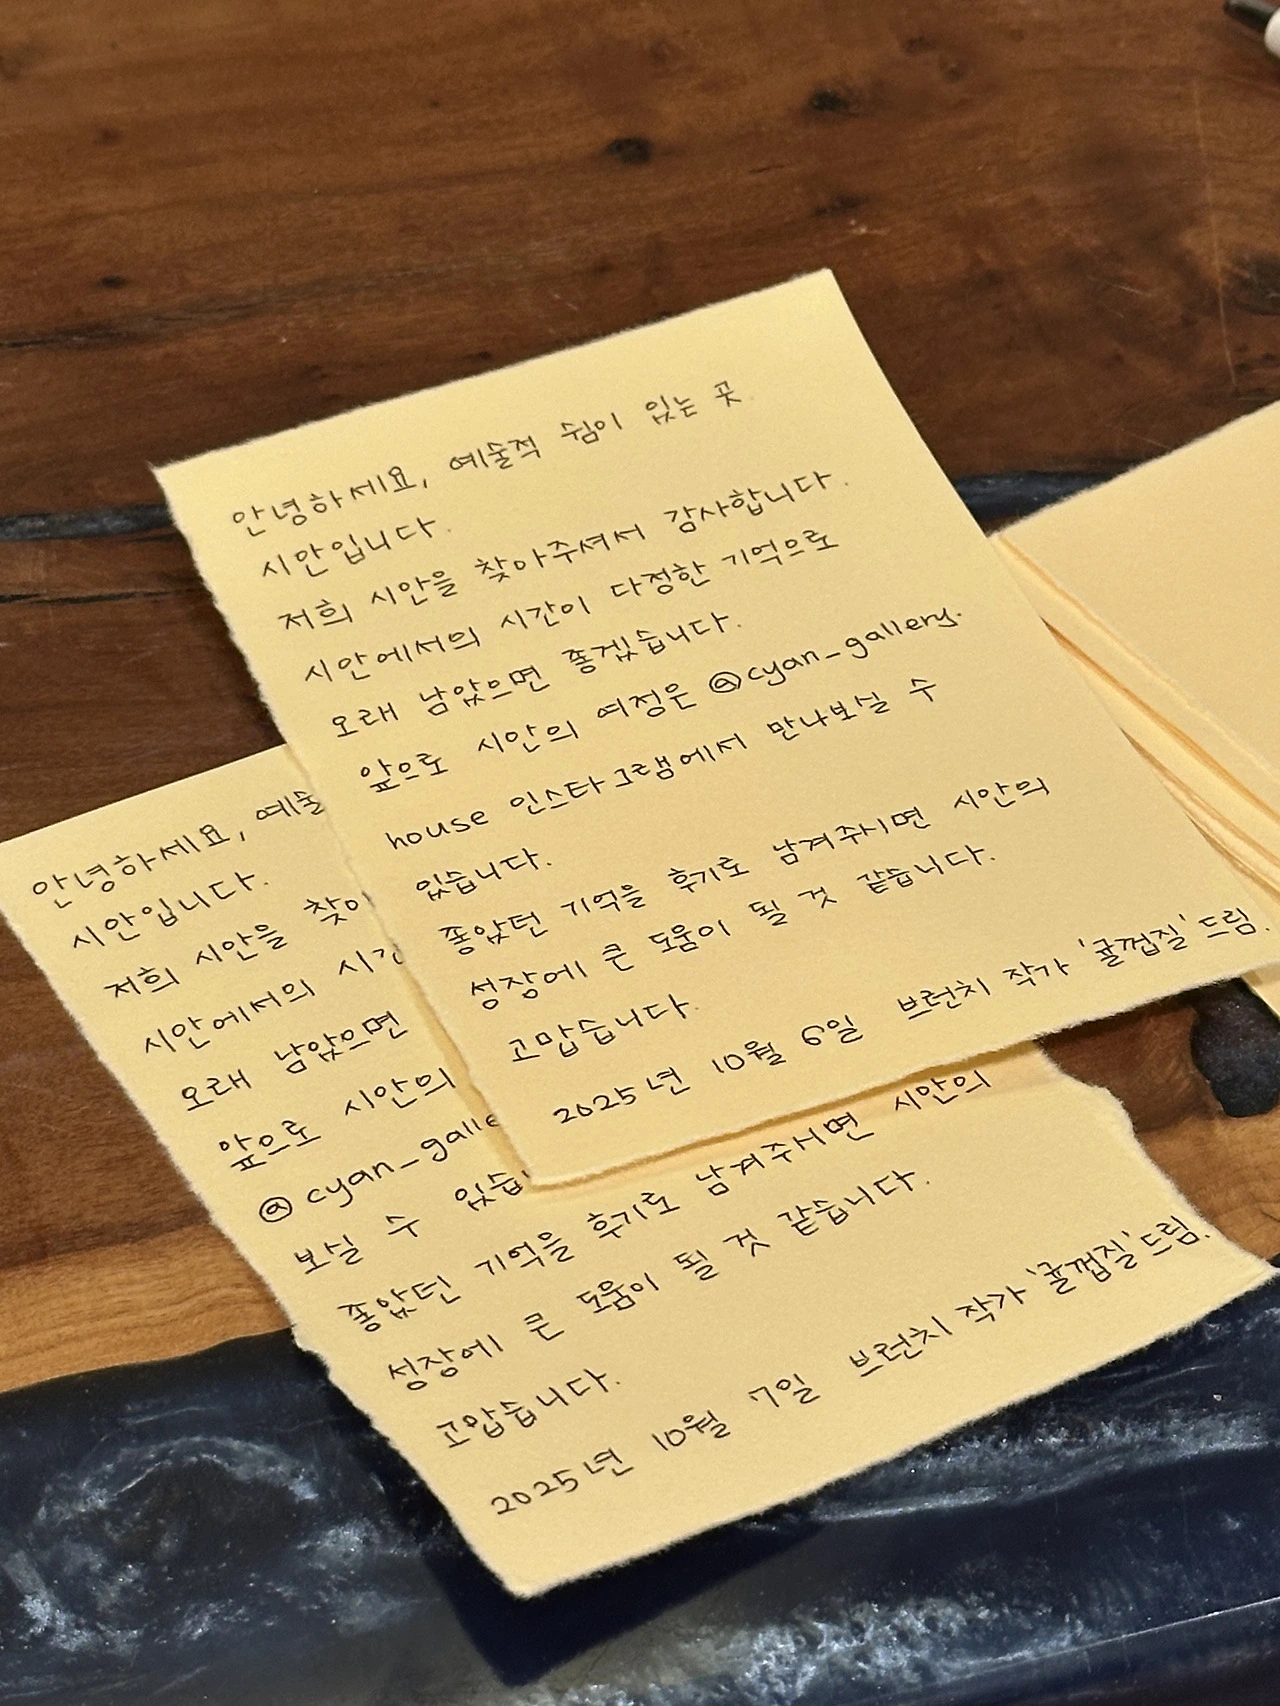 안녕하세요, 예술적 쉼이 있는 곳
시안입니다.
저희 시안을 찾아주셔서 감사합니다.
시안에서의 시간이 다정한 기억으로
오래 남았으면 좋겠습니다.
앞으로 시안의 여정은 @cyan_gallery.
house 인스타그램에서 만나보실 수
있습니다.
좋았던 기억을 후기로 남겨주시면 시안의
성장에 큰 도움이 될 것 같습니다.
고맙습니다.
2025년 10월 6일 브런치 작가 '귤껍질' 드림.
안녕하세요, 예술
시안입니다.
저희 시안을 찾아
시안에서의 시간
오래 남았으면
앞으로 시안의
@cyan_galle
보실 수 있습
좋았던 기억을 후기로 남겨주시면 시안의
성장에 큰 도움이 될 것 같습니다.
고맙습니다.
2025년 10월 7일 브런치 작가 '귤껍질' 드림.